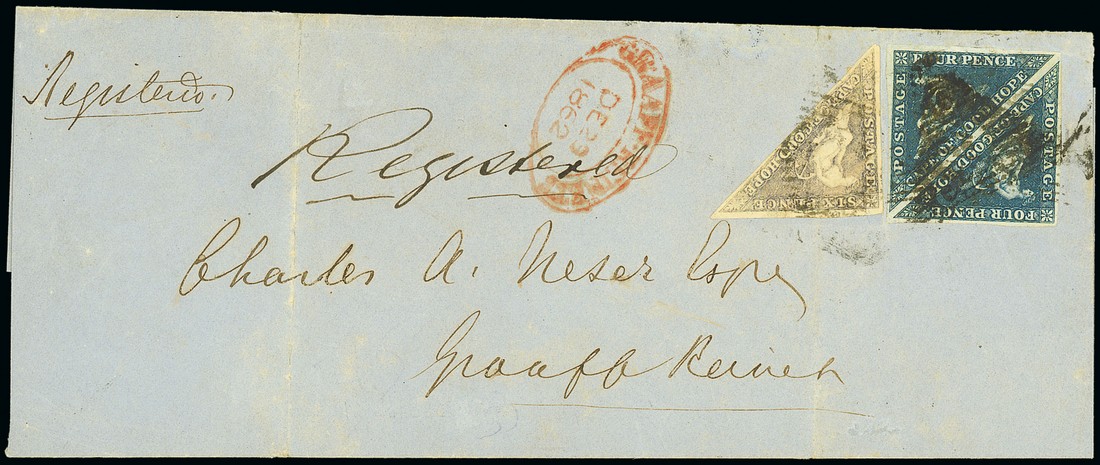 Registered.
Registered
Charles A. Neser Esqre
Graaff Reinet
GRAAFF-REINET
DE 29
1862
CAPE OF GOOD HOPE
POSTAGE
SIX PENCE
POSTAGE
FOUR PENCE
CAPE OF GOOD HOPE
CAPE OF GOOD HOPE
POSTAGE
FOUR PENCE